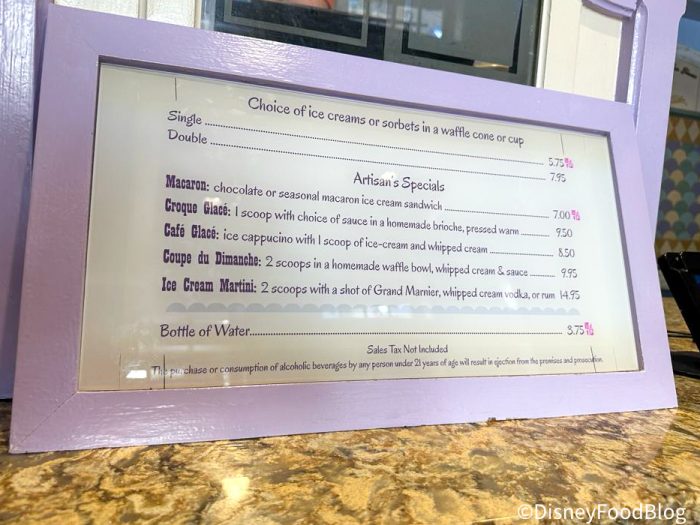 Choice of ice creams or sorbets in a waffle cone or cup
Single 5.75
Double 7.95
Artisan's Specials
Macaron: chocolate or seasonal macaron ice cream sandwich 7.00
Croque Glacé: 1 scoop with choice of sauce in a homemade brioche, pressed warm 9.50
Café Glacé: ice cappuccino with 1 scoop of ice-cream and whipped cream 8.50
Coupe du Dimanche: 2 scoops in a homemade waffle bowl, whipped cream & sauce 9.95
Ice Cream Martini: 2 scoops with a shot of Grand Marnier, whipped cream vodka, or rum 14.95
Bottle of Water 3.75
Sales Tax Not Included
The purchase or consumption of alcoholic beverages by any person under 21 years of age will result in ejection from the premises and prosecution.
©DisneyFoodBlog